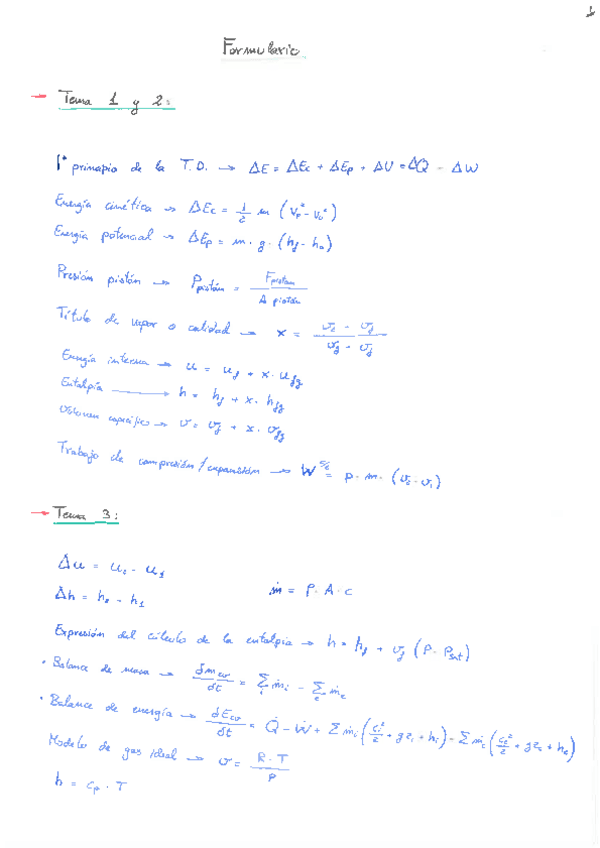 1
Formulario
→ Tema 1 y 2:
1º principio de la T.D. → ΔE = ΔEc + ΔEp + ΔU = ΔQ - ΔW
Energía cinética → ΔEc = 1/2 m (Vf² - Vo²)
Energía potencial → ΔEp = m · g · (hf - ho)
Presión pistón → Ppistón = Fpistón / A pistón
Título de vapor o calidad → x = (v2 - vf) / (vg - vf)
Energía interna → u = uf + x · ufg
Entalpía → h = hf + x · hfg
Volumen específico → v = vf + x · vfg
Trabajo de compresión/expansión → W c/e = p · m · (v2 - v1)
→ Tema 3:
Δu = u2 - u1
Δh = h2 - h1 ṁ = ρ · A · c
Expresión del cálculo de la entalpía → h = hf + vf (P - Psat)
· Balance de masa → δmcv/δt = Σi ṁi - Σe ṁe
· Balance de energía → δEcv/δt = Q̇ - Ẇ + Σ ṁi (ci²/2 + gzi + hi) - Σ ṁe (ce²/2 + gze + he)
Modelo de gas ideal → v = R · T / P
h = cp · T